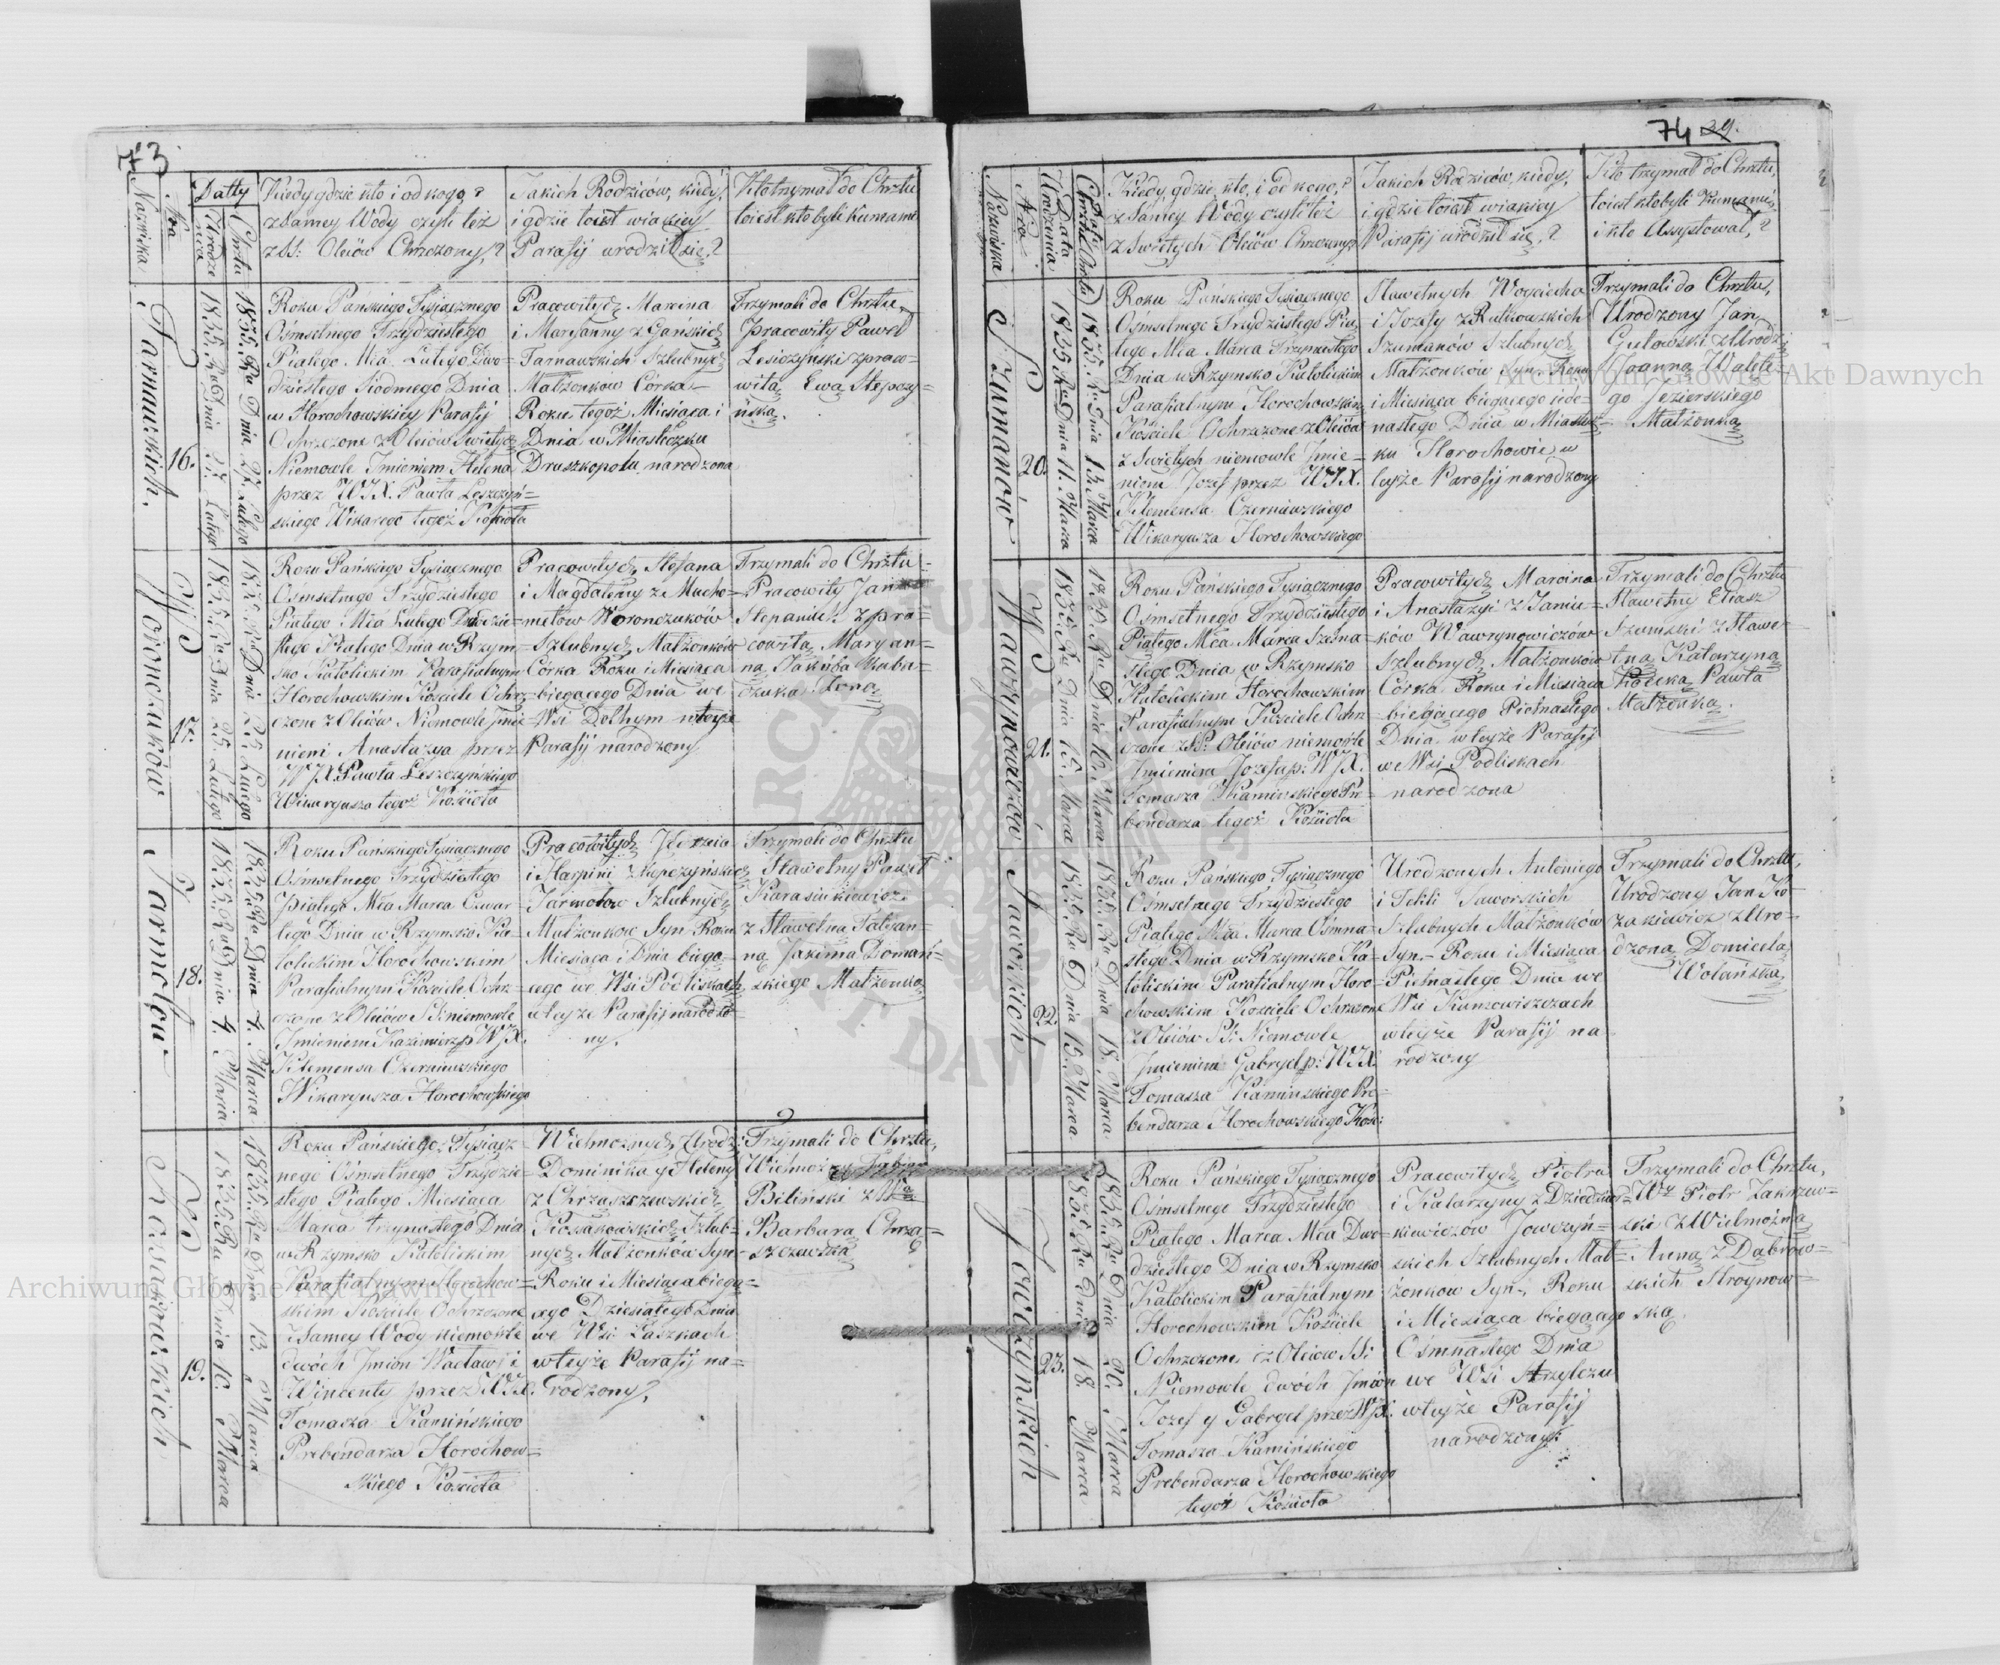 73
Nazwiska
Nra
Datty
Urodze
nia
Chrztu
Kiedy gdzie kto i od kogo,?
z Samey Wody czyli też
z SS: Oleiów Chrzczony,?
Jakich Rodziców, kiedy,
i gdzie toiest wiakiey
Parafij urodził się,?
Kto trzymał do Chrztu
toiest kto byli Kumami
Tarnawskich.
16.
1835. Ru Dnia 27. Lutego
1835. Ru Dnia 27. Lutego
Roku Pańskiego Tysiącznego
Ośmsetnego Trzydziestego
Piątego Mca Lutego Dwo-
dziestego Siodmego Dnia
w Horochowskiey Parafij
Ochrzczone z Oleiów Świętych
Niemowle Imieniem Helena
przez WJX. Pawła Leszczyń-
skiego Wikarego tegoż Kościoła
Pracowitych Marcina
i Maryanny z Gańskich
Tarnawskich Szlubnych
Małżonkow Córka
Roku tegoż Miesiąca i
Dnia w Miasteczku
Druszkopolu narodzona
Trzymali do Chrztu,
Pracowity Paweł
Lesiczyński z praco-
witą Ewą Stępczy-
ńską.
Woronczuków
17.
1835. Ru Dnia 25. Lutego
1835. Ru Dnia 25. Lutego
Roku Pańskiego Tysiącznego
Ośmsetnego Trzydziestego
Piątego Mca Lutego Dwudzie-
stego Piątego Dnia w Rzym-
sko Katolickim Parafialnym
Horochowskim Kościele Ochrz-
czone z Oleiów Niemowle Imie-
niem Anastazya przez
WJX. Pawła Leszczyńskiego
Wikaryusza tegoż Kościoła
Pracowitych Stefana
i Magdaleny z Macho-
metow Woronczuków
Szlubnych Małżonków
Córka Roku i Miesiąca
biegącego Dnia we
Wsi Dołhym wteyże
Parafij narodzony
Trzymali do Chrztu
Pracowity Jan
Stepaniuk z pra
cowitą Maryan-
ną Jakuba
Żoną
Jarmołow
18.
1835. Ru Dnia 4. Marca
1835. Ru Dnia 4. Marca
Roku Pańskiego Tysiącznego
Ośmsetnego Trzydziestego
Piątego Mca Marca Czwar
tego Dnia w Rzymsko Ka-
tolickim Horochowskim
Parafialnym Kościele Ochrz-
czone z Oleiów SS: niemowle
Imieniem Kazimierz p: WJX.
Klemensa Czerniawskiego
Wikaryusza Horochowskiego
Pracowitych
i Harpini z Stępczyńskich
Jarmołow Szlubnych
Małżonkow Syn Roku
Miesiąca i Dnia biegą-
cego we Wsi Podliskach
wteyże Parafij narodzo-
ny.
Trzymali do Chrztu
Sławetny Paweł
Karasinkiewicz
z Sławetną Tatyan-
ną Jakima Domań-
skiego Małżonką
Kossakowskich
19.
1835. Ru Dnia 10. Marca
1835. Ru Dnia 13. Marca
Roku Pańskiego Tysiącz-
nego Ośmsetnego Trzydzie-
stego Piątego Miesiąca
Marca trzynastego Dnia
w Rzymsko Katolickim
Parafialnym Horochow-
skim Kościele Ochrzczone
z Samey Wody niemowle
dwóch Imion Wacław i
Wincenty przez WJX.
Tomasza Kamińskiego
Prebendarza Horochow-
skiego Kościoła
Wielmożnych Urodz:
Dominika y Heleny
z Chrząszczewskich
Kossakowskich Szlub-
nych Małżonków Syn-
Roku i Miesiąca biegą-
cego Dziesiątego Dnia
we Wsi Łaszkach
wteyże Parafij na-
rodzony,
Trzymali do Chrztu,
Wielmożny
Biliński z Wną
Barbarą Chrzą-
szczewską
74 29.
Nazwiska
Nra
Data
Urodzenia
Datty
Chrztu
Kiedy, gdzie, kto, i od kogo,?
z Samey Wody czyli też
z Świętych Oleiów Chrzczony,?
Jakich Rodziców, kiedy,
i gdzie toiest wiakiey
Parafij urodził się,?
Kto trzymał do Chrztu,
toiest kto byli Kumami,
i kto Assystował,?
Szumanów
20.
1835 Ru Dnia 11. Marca
1835. Ru Dnia 13. Marca
Roku Pańskiego Tysiącznego
Ośmsetnego Trzydziestego Pią-
tego Mca Marca Trzynastego
Dnia w Rzymsko Katolickim
Parafialnym Horochowskim
Kościele Ochrzczone z Oleiów
Świętych niemowle Imie-
niem Jozef przez WJX.
Klemensa Czerniawskiego
Wikaryusza Horochowskiego
Sławetnych Woyciecha
i Jozefy z Rutkowskich
Szumanów Szlubnych
Małżonków Syn Roku
i Miesiąca biegącego iede-
nastego Dnia w Miastecz-
ku Horochowie w
teyże Parafij narodzony
Trzymali do Chrztu,
Urodzony Jan
Gutowski z Urodz:
Joanną Walete-
go Jezierskiego
Małżonką
Wawrynowiczów
21.
1835. Ru Dnia 15. Marca
1835. Ru Dnia 16. Marca
Roku Pańskiego Tysiącznego
Ośmsetnego Trzydziestego
Piątego Mca Marca Szesna-
stego Dnia w Rzymsko
Katolickim Horochowskim
Parafialnym Kościele Ochrz-
czone z SS: Oleiów niemowle
Imieniem Jozefa p: WJX.
Tomasza Kamińskiego Pre-
bendarza tegoż Kościoła
Pracowitych Marcina
i Anastazyi z Janiu-
ków Wawrynowiczów
Szlubnych Małżonków
Córka Roku i Miesiąca
biegącego Piętnastego
Dnia wteyże Parafij
we Wsi Podliskach
narodzona
Trzymali do Chrztu
Sławetny Eliasz
Szumski z Sławe-
tną Katarzyną
Pawła
Małżonką.
Jaworskich
22.
1835 Ru Dnia 15. Marca
1835. Ru Dnia 18. Marca
Roku Pańskiego Tysiącznego
Ośmsetnego Trzydziestego
Piątego Mca Marca Ośmna-
stego Dnia w Rzymsko Ka-
tolickim Parafialnym Horo-
chowskim Kościele Ochrzczone
z Oleiów SS: Niemowle
Imieniem Gabryel p: WJX.
Tomasza Kamińskiego Pre-
bendarza Horochowskiego Kość:
Urodzonych Antoniego
i Tekli Jaworskich
Szlubnych Małżonków
Syn- Roku i Miesiąca
Pietnastego Dnia we
Wsi Kumowiszczach
wteyże Parafij na
rodzony
Trzymali do Chrztu,
Urodzony Jan Ko-
zakiewicz z Uro-
dzoną Domicelą
Wolańską
Jowczyńskich
23.
1835 Ru Dnia 18. Marca
1835. Ru Dnia 20. Marca
Roku Pańskiego Tysiącznego
Ośmsetnego Trzydziestego
Piątego Marca Mca Dwu-
dziestego Dnia w Rzymsko
Katolickim Parafialnym
Horochowskim Kościele
Ochrzczone iz Oleiow SS:
Niemowle dwóch Imion
Jozef y Gabryel przez WJX.
Tomasza Kamińskiego
Prebendarza Horochowskiego
tegoż Kościoła
Pracowitych Piotra
i Katarzyny z Dziedzia-
kiewiczów Jowczyń-
skich Szlubnych Mał-
żonkow Syn, Roku
i Miesiąca biegącego
Ośmnastego Dnia
we Wsi Strzylczu
wteyże Parafij
narodzony
Trzymali do Chrztu,
Wy Piotr Zakrzew-
ski z Wielmożną
Anną z Dąbrow-
skich Stroynow-
ską.
Archiwum Główne Akt Dawnych
Archiwum Główne Akt Dawnych